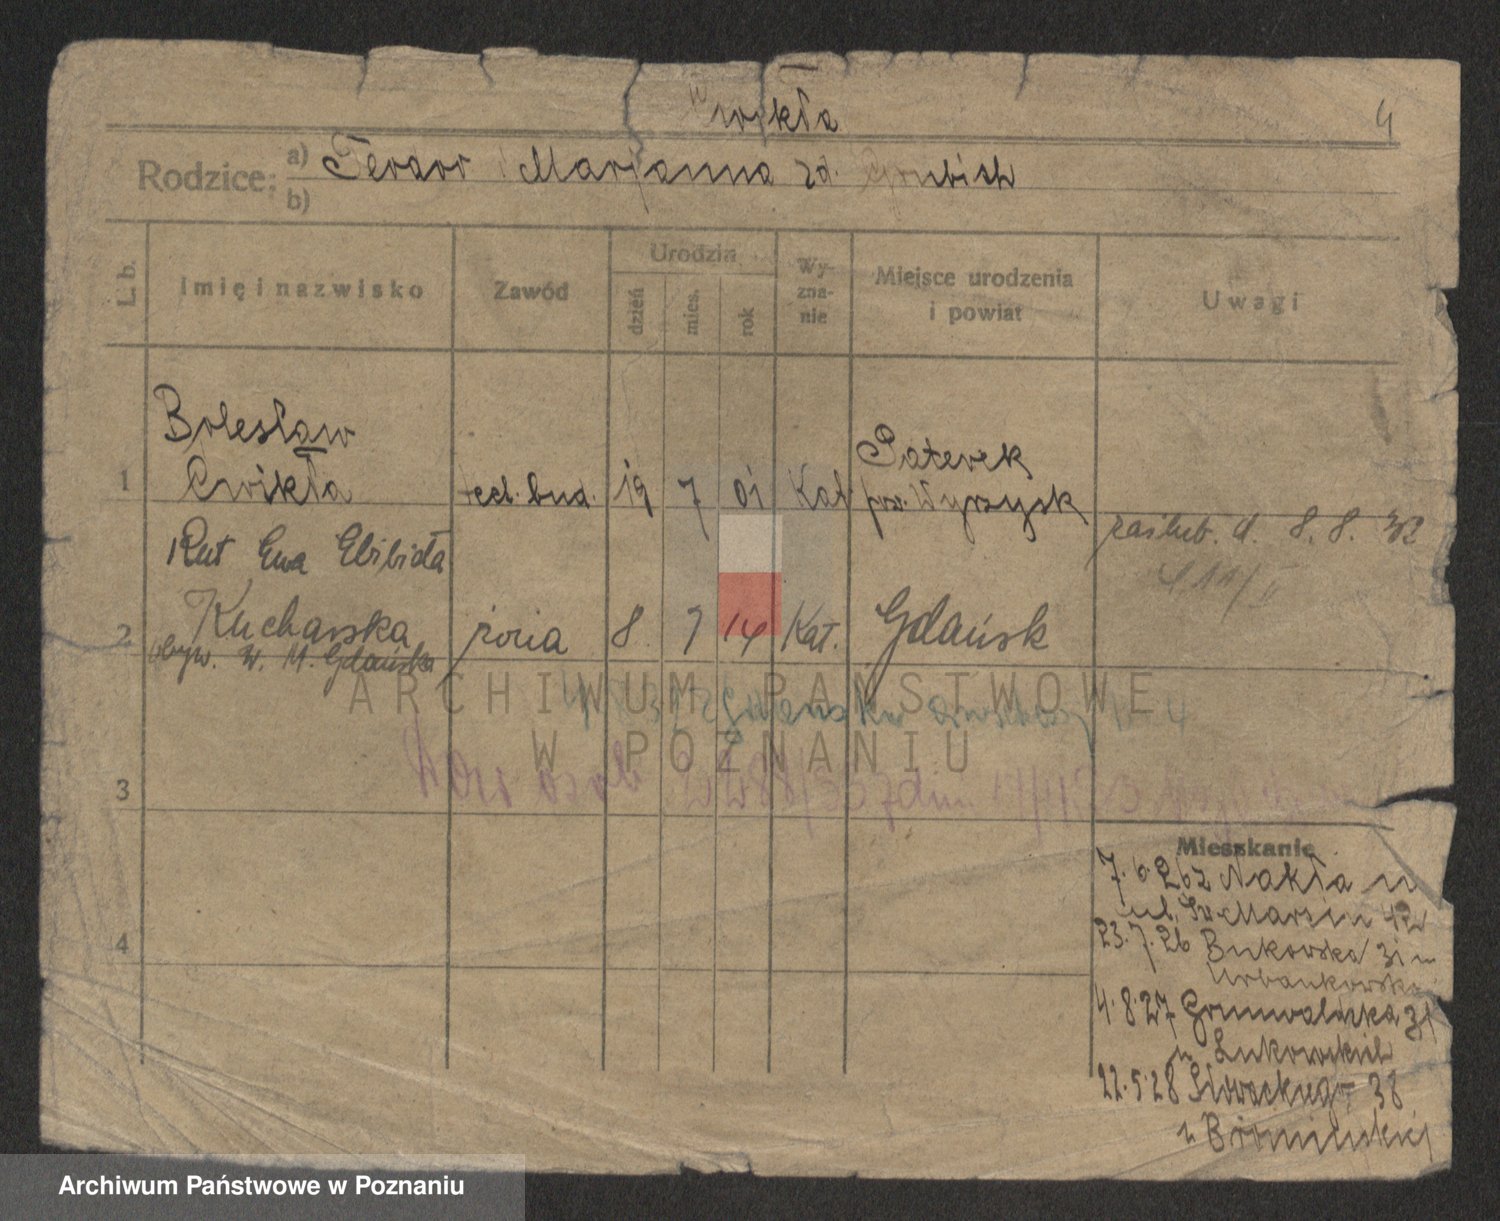 Cwikła
4
Rodzice: a) Teodor i Marjanna zd. Grubich
b)
L. b. Imię i nazwisko Zawód Urodzin dzień mies. rok Wy-zna-nie Miejsce urodzenia i powiat Uwagi
Bolesław
1 Cwikła tech. bud. 19 7 01 Kat Paterek pow. Wyrzysk
Rut Ewa
zaślub. d. 8. 8. 32
2 Kucharska żona 8. 7 14 Kat. Gdańsk
obyw. W. M. Gdańska
ARCHIWUM PAŃSTWOWE
W POZNANIU
3
Mieszkanie
7. 6 26 z Nakła
ul. Św Marcin 42
4
23. 7. 26 Bukowska 31 u
Urbankowska
4. 8. 27 Grunwaldzka 31
u
22. 5. 28 Słowackiego 38
u
Archiwum Państwowe w Poznaniu